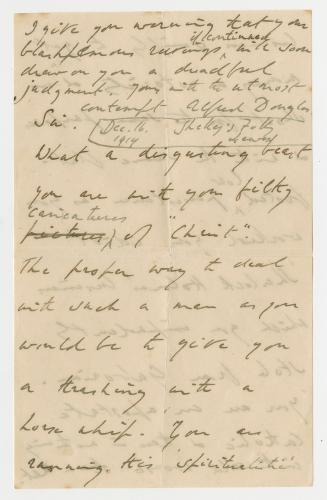 I give you warning that your
if continued
blasphemous ravings, will soon
draw on you a dreadful
judgment. Yours with the utmost
contempt Alfred Douglas.
Sir. Dec. 16. 1914 Shelley's Folly Lewes
What a disgusting beast
you are with your filthy
caricatures
pictures) of "Christ"
The proper way to deal
with such a man as you
would be to give you
a thrashing with a
horse whip. You are
running. His spiritualistic